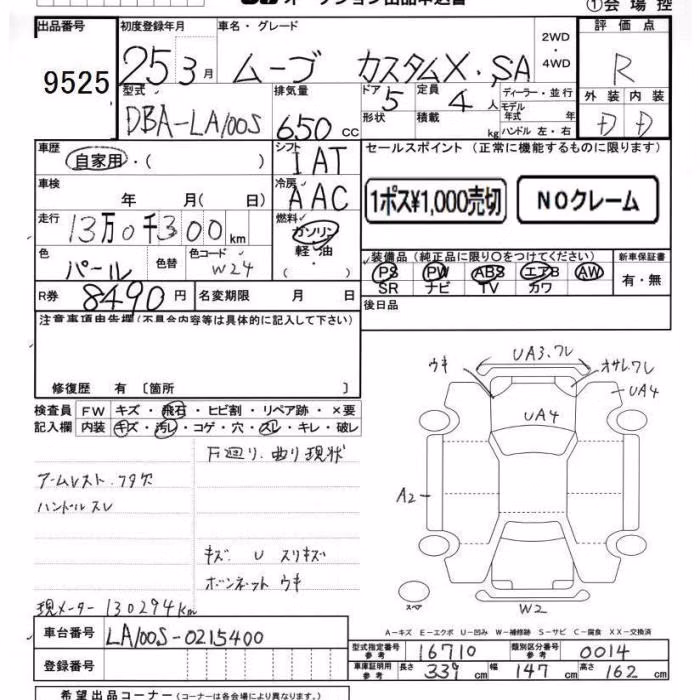 オークション出品申込書
①会場控
出品番号 9525
初度登録年月 25 3月
車名・グレード ムーブ カスタムX・SA
2WD・4WD
評価点 R
型式 DBA-LA100S
排気量 650cc
ドア 5
形状
定員 4人
積載 kg
ディーラー・並行
モデル年式 年
ハンドル 左・右
外装 D 内装 D
車歴 自家用・( )
シフト IAT
車検 年 月( 日)
冷房 AAC
走行 13万0千300km
燃料 ガソリン 軽・油 ( ・ )
色 パール 色替 色コード W24
R券 8490円 名変期限 月 日
セールスポイント(正常に機能するものに限ります)
1ポス¥1,000売切 NOクレーム
装備品(純正品に限り○をつけてください) 新車保証書
PS PW ABS エアB AW 有・無
SR ナビ TV カワ
後日品
注意事項申告欄(不具合内容等は具体的に記入して下さい)
修復歴 有〔箇所 〕
検査員 FW キズ・飛石・ヒビ割・リペア跡・×要
記入欄 内装 キズ・汚レ・コゲ・穴・スレ・キレ・破レ
下廻り.曲り現状
アームレスト.フタ欠
ハンドルスレ
キズ U スリキズ
ボンネットウキ
現メーター 130294km
ウキ UA3.ワレ オサレ.ワレ
UA4
UA4
A2
スペア
W2
A−キズ E−エクボ U−凹み W−補修跡 S−サビ C−腐食 XX−交換済
車台番号 LA100S-0215400
型式指定番号 参考 16710 類別区分番号 参考 0014
登録番号
車庫証明用 参考 長さ 339cm 幅 147cm 高さ 162cm
希望出品コーナー(コーナーは各会場により異なります。)